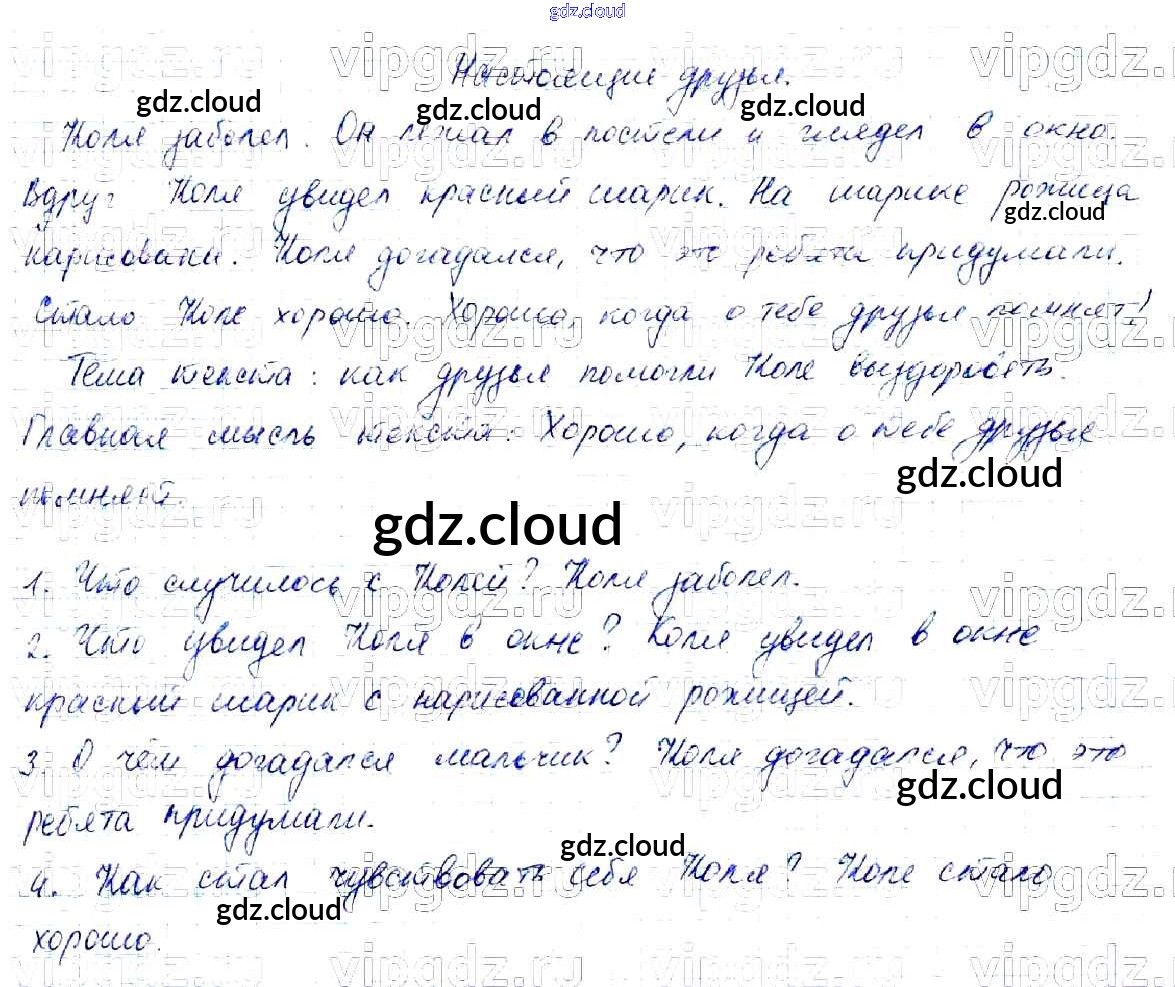 gdz.cloud
Настоящие друзья.
Коля заболел. Он лежал в постели и глядел в окно.
Вдруг Коля увидел красный шарик. На шарике рожица
нарисована. Коля догадался, что это ребята придумали.
Стало Коле хорошо. Хорошо, когда о тебе друзья помнят!
Тема текста: как друзья помогли Коле выздороветь.
Главная мысль текста: Хорошо, когда о тебе друзья
помнят.
1. Что случилось с Колей? Коля заболел.
2. Что увидел Коля в окне? Коля увидел в окне
красный шарик с нарисованной рожицей.
3. О чём догадался мальчик? Коля догадался, что это
ребята придумали.
4. Как стал чувствовать себя Коля? Коле стало
хорошо.